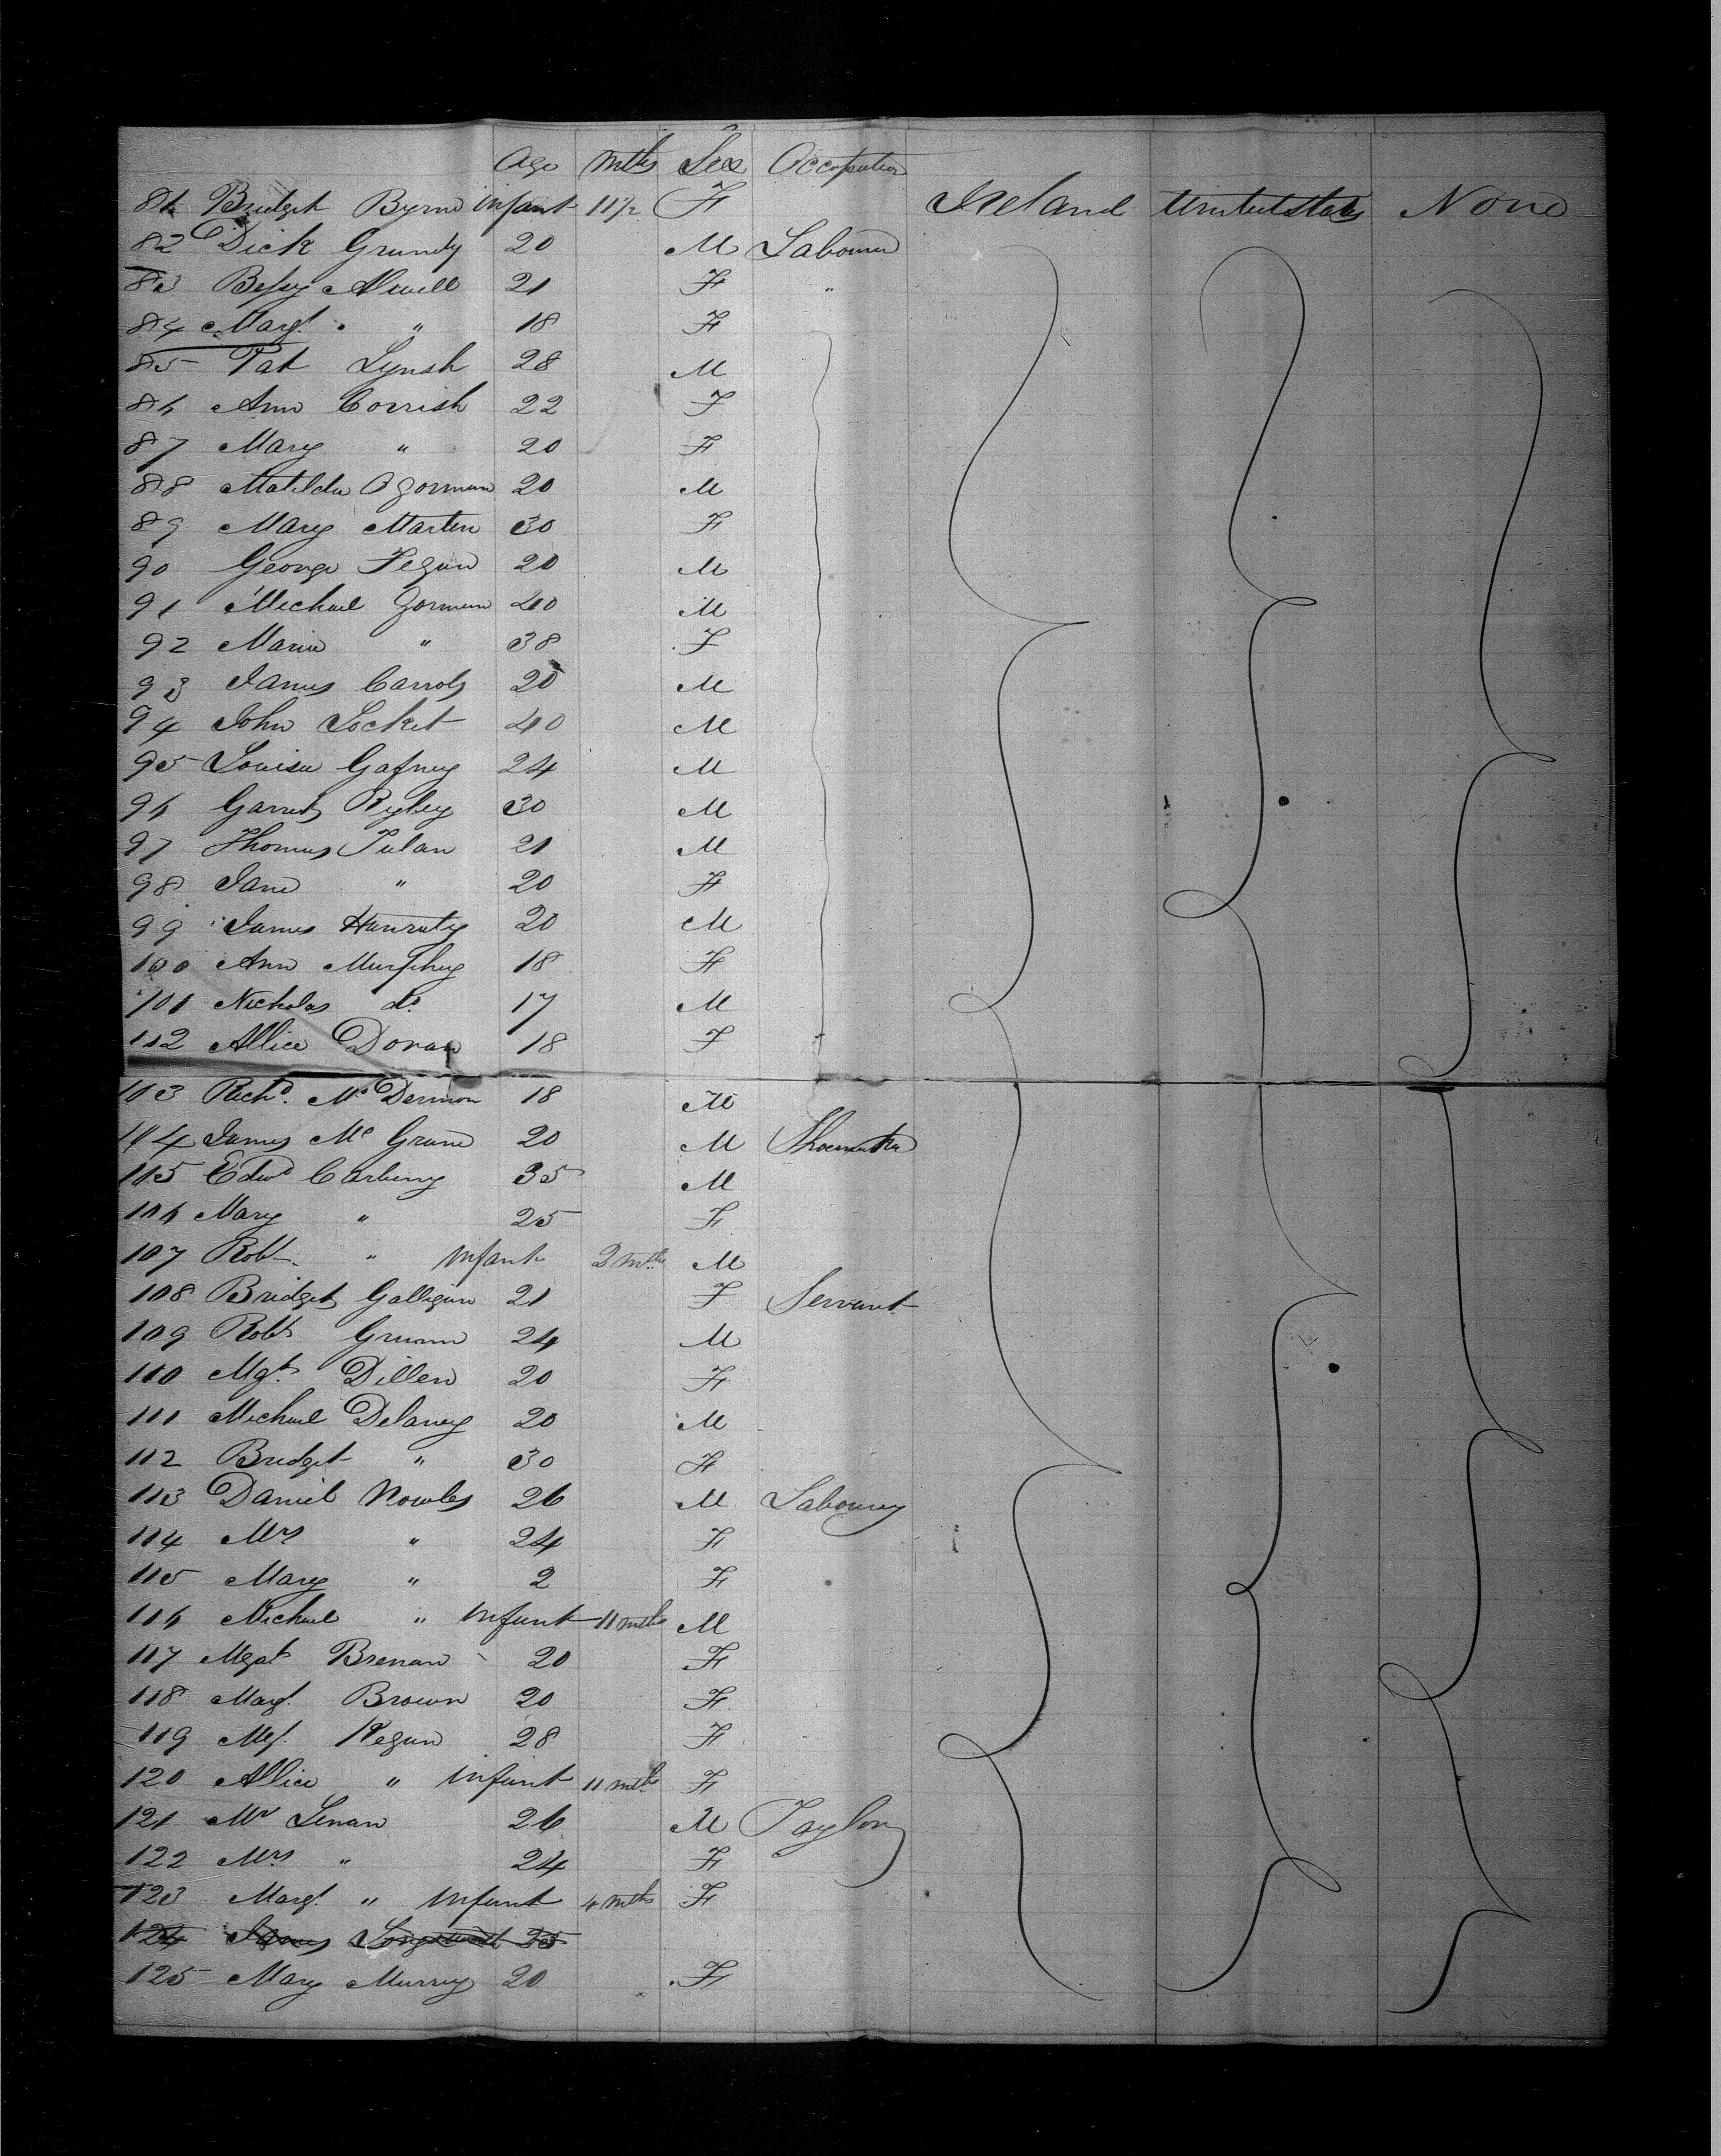 Age mths Sex Occupation
81 Bridget Byrne infant 11½ F Ireland United States None
82 Dick Grundy 20 M Labourer
83 Bessy Newell 21 F "
84 Margt. " 18 F
85 Pat Lynsh 28 M
86 Ann Corrish 22 F
87 Mary " 20 F
88 Matilda O Gorman 20 M
89 Mary Marten 30 F
90 George Fegan 20 M
91 Michael Gorman 40 M
92 Maria " 38 F
93 James Carrols 20 M
94 John Locket 40 M
95 Louisa Gafney 24 M
96 Garret Rigley 30 M
97 Thomas Tulan 21 M
98 Jane " 20 F
99 James Hanraty 20 M
100 Ann Murphey 18 F
101 Nicholas do. 17 M
102 Allice Doran 18 F
103 Richd. Mc Dermon 18 M
104 James Mc Grane 20 M Shoemaker
105 Edwd Carberry 35 M
106 Mary " 25 F
107 Robt. " infant 2 mths M
108 Bridget Galligan 21 F Servant
109 Robt Gruann 24 M
110 Mgt. Dillen 20 F
111 Michael Delaney 20 M
112 Bridget " 30 F
113 Daniel Nowles 26 M Labourer
114 Mrs " 24 F
115 Mary " 2 F
116 Michael " infant 11 mths M
117 Mgat Brenan 20 F
118 Margt. Brown 20 F
119 Mgt. Regan 28 F
120 Allice " infant 11 mths F
121 Mr Lenan 26 M Taylor
122 Mrs " 24 F
123 Margt. " infant 4 mths F
124 James 25
125 Mary Murrey 20 F